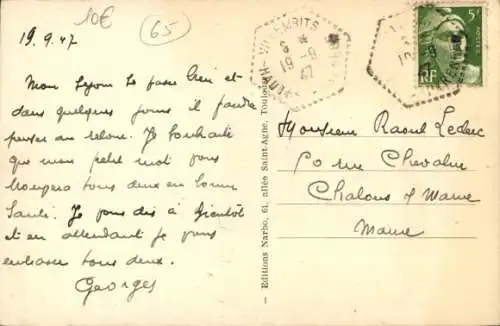 10€
65
19.9.47
Mon séjour se passe bien et
dans quelques jours il faudra
penser au retour. Je souhaite
que mon petit mot vous
trouvera tous deux en bonne
Santé. Je vous dis à bientôt
et en attendant je vous
embrasse tous deux.
Georges
Editions Narbo, 61, allée Saint-Agne, Toulouse
19-9
47
5F
RF
Monsieur Raoul Leclerc
rue Chevalier
Chalons s/ Marne
Marne